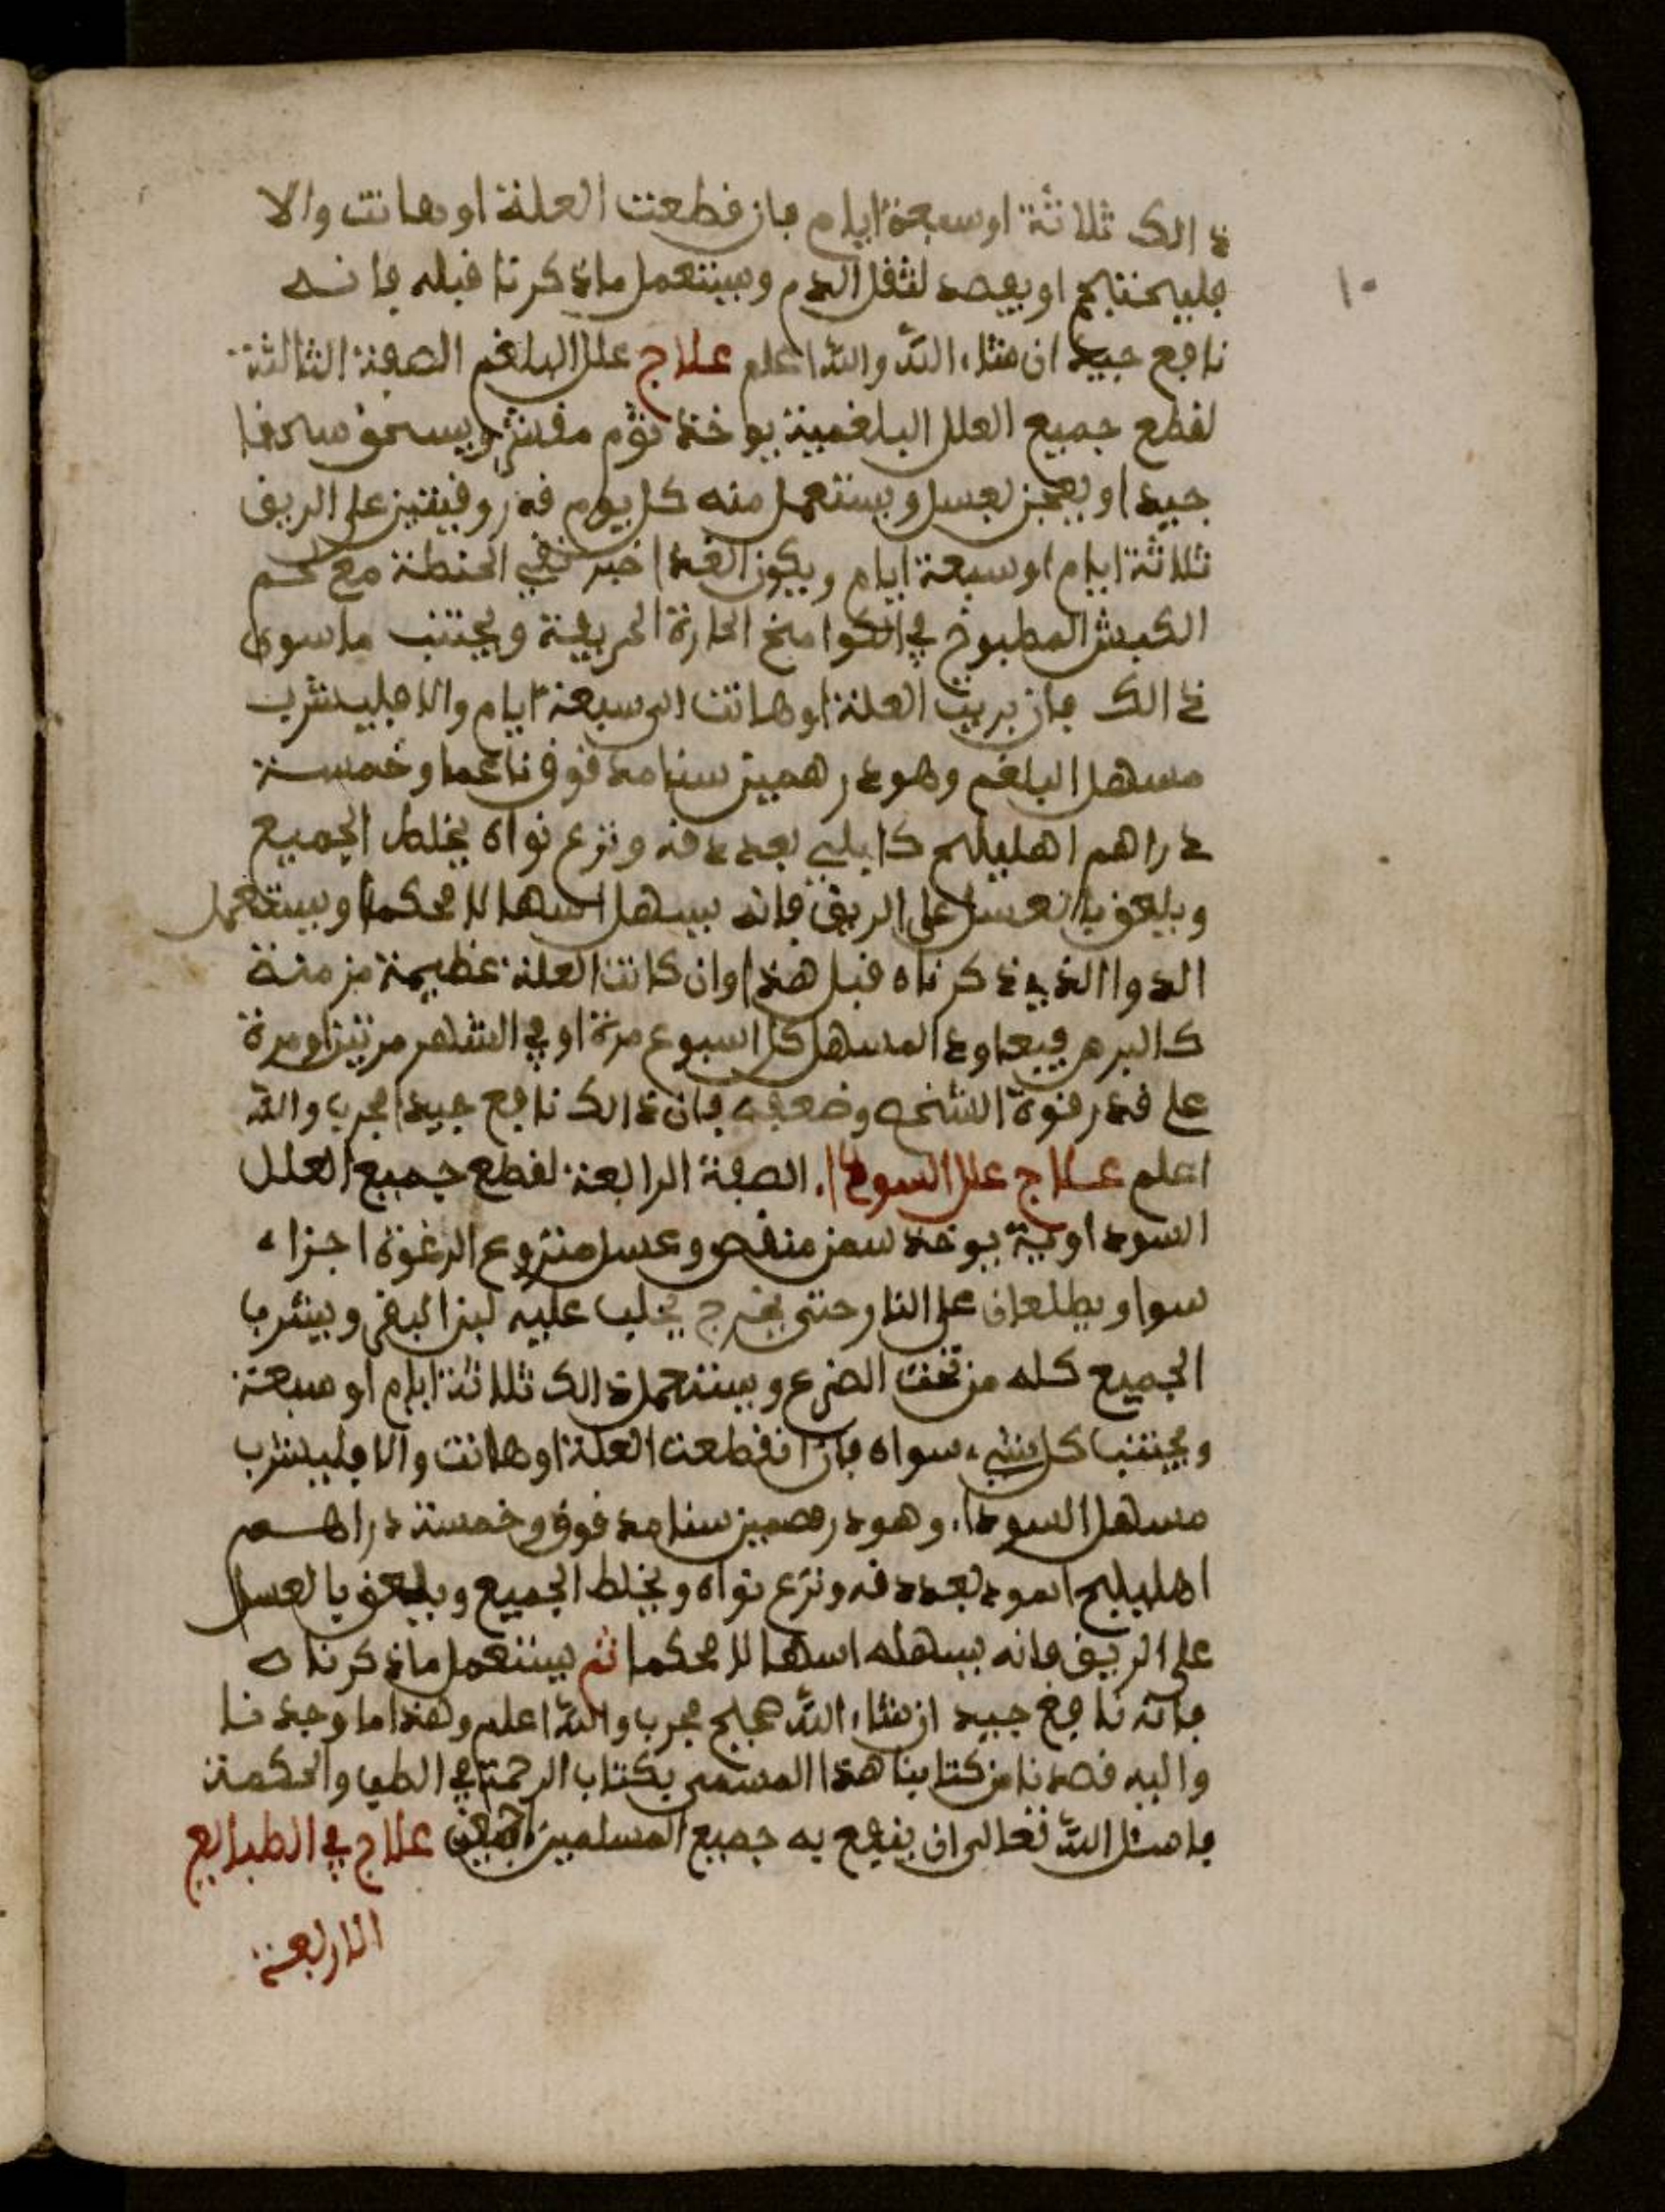 ذالك ثلاثة او سبعة ايام فان قطعت العلة او هانت والا
١٠
فليحتجم او يفصد لثقل الدم ويستعمل ما ذكرنا قبله فانه
نافع جيد ان شاء الله والله اعلم علاج علل البلغم الصفة الثالثة
لقطع جميع العلل البلغمية يوخذ ثوم مقشر ويسحق سحقا
جيدا ويعجن بعسل ويستعمل منه كل يوم قدر وقيتين على الريق
ثلاثة ايام او سبعة ايام ويكون الغذا خبز نقي الحنطة مع لحم
الكبش المطبوخ في الكوامخ الحارة الحريفة ويجتنب ما سوى
ذالك فان بريت العلة او هانت الى سبعة ايام والا فليشرب
مسهل البلغم وهو درهمين سنا مدقوق ناعما وخمسة
دراهم اهليلج كابلي بعد دقه ونزع نواه يخلط الجميع
ويلعق بالعسل على الريق فانه يسهل اسهالا محكما ويستعمل
الدوا الذي ذكرناه قبل هذا وان كانت العلة عظيمة مزمنة
كالبرص فيعاود المسهل كل اسبوع مرة او في الشهر مرتين او مرة
على قدر قوة الشخص وضعفه فان ذالك نافع جيد مجرب والله
اعلم علاج علل السودا، الصفة الرابعة لقطع جميع العلل
السوداوية يوخذ سمن منقص وعسل منزوع الرغوة اجزاء
سوا ويطلعان على النار حتى يخرج يحلب عليه لبن البقر ويشرب
الجميع كله من تحت الضرع ويستعمل ذالك ثلاثة ايام او سبعة
ويجتنب كل شيء سواه فان انقطعت العلة او هانت والا فليشرب
مسهل السودا، وهو درهمين سنا مدقوق وخمسة دراهم
اهليلج اسود بعد دقه ونزع نواه ويخلط الجميع ويلعق بالعسل
على الريق فانه يسهله اسهالا محكما ثم يستعمل ما ذكرناه
فانه نافع جيد ان شاء الله صحيح مجرب والله اعلم وهذا ما وجدنا
واليه قصدنا من كتابنا هذا المسمى بكتاب الرحمة في الطب والحكمة
فاسئل الله تعالى ان ينفع به جميع المسلمين اجمعين علاج في الطبايع
الاربعة